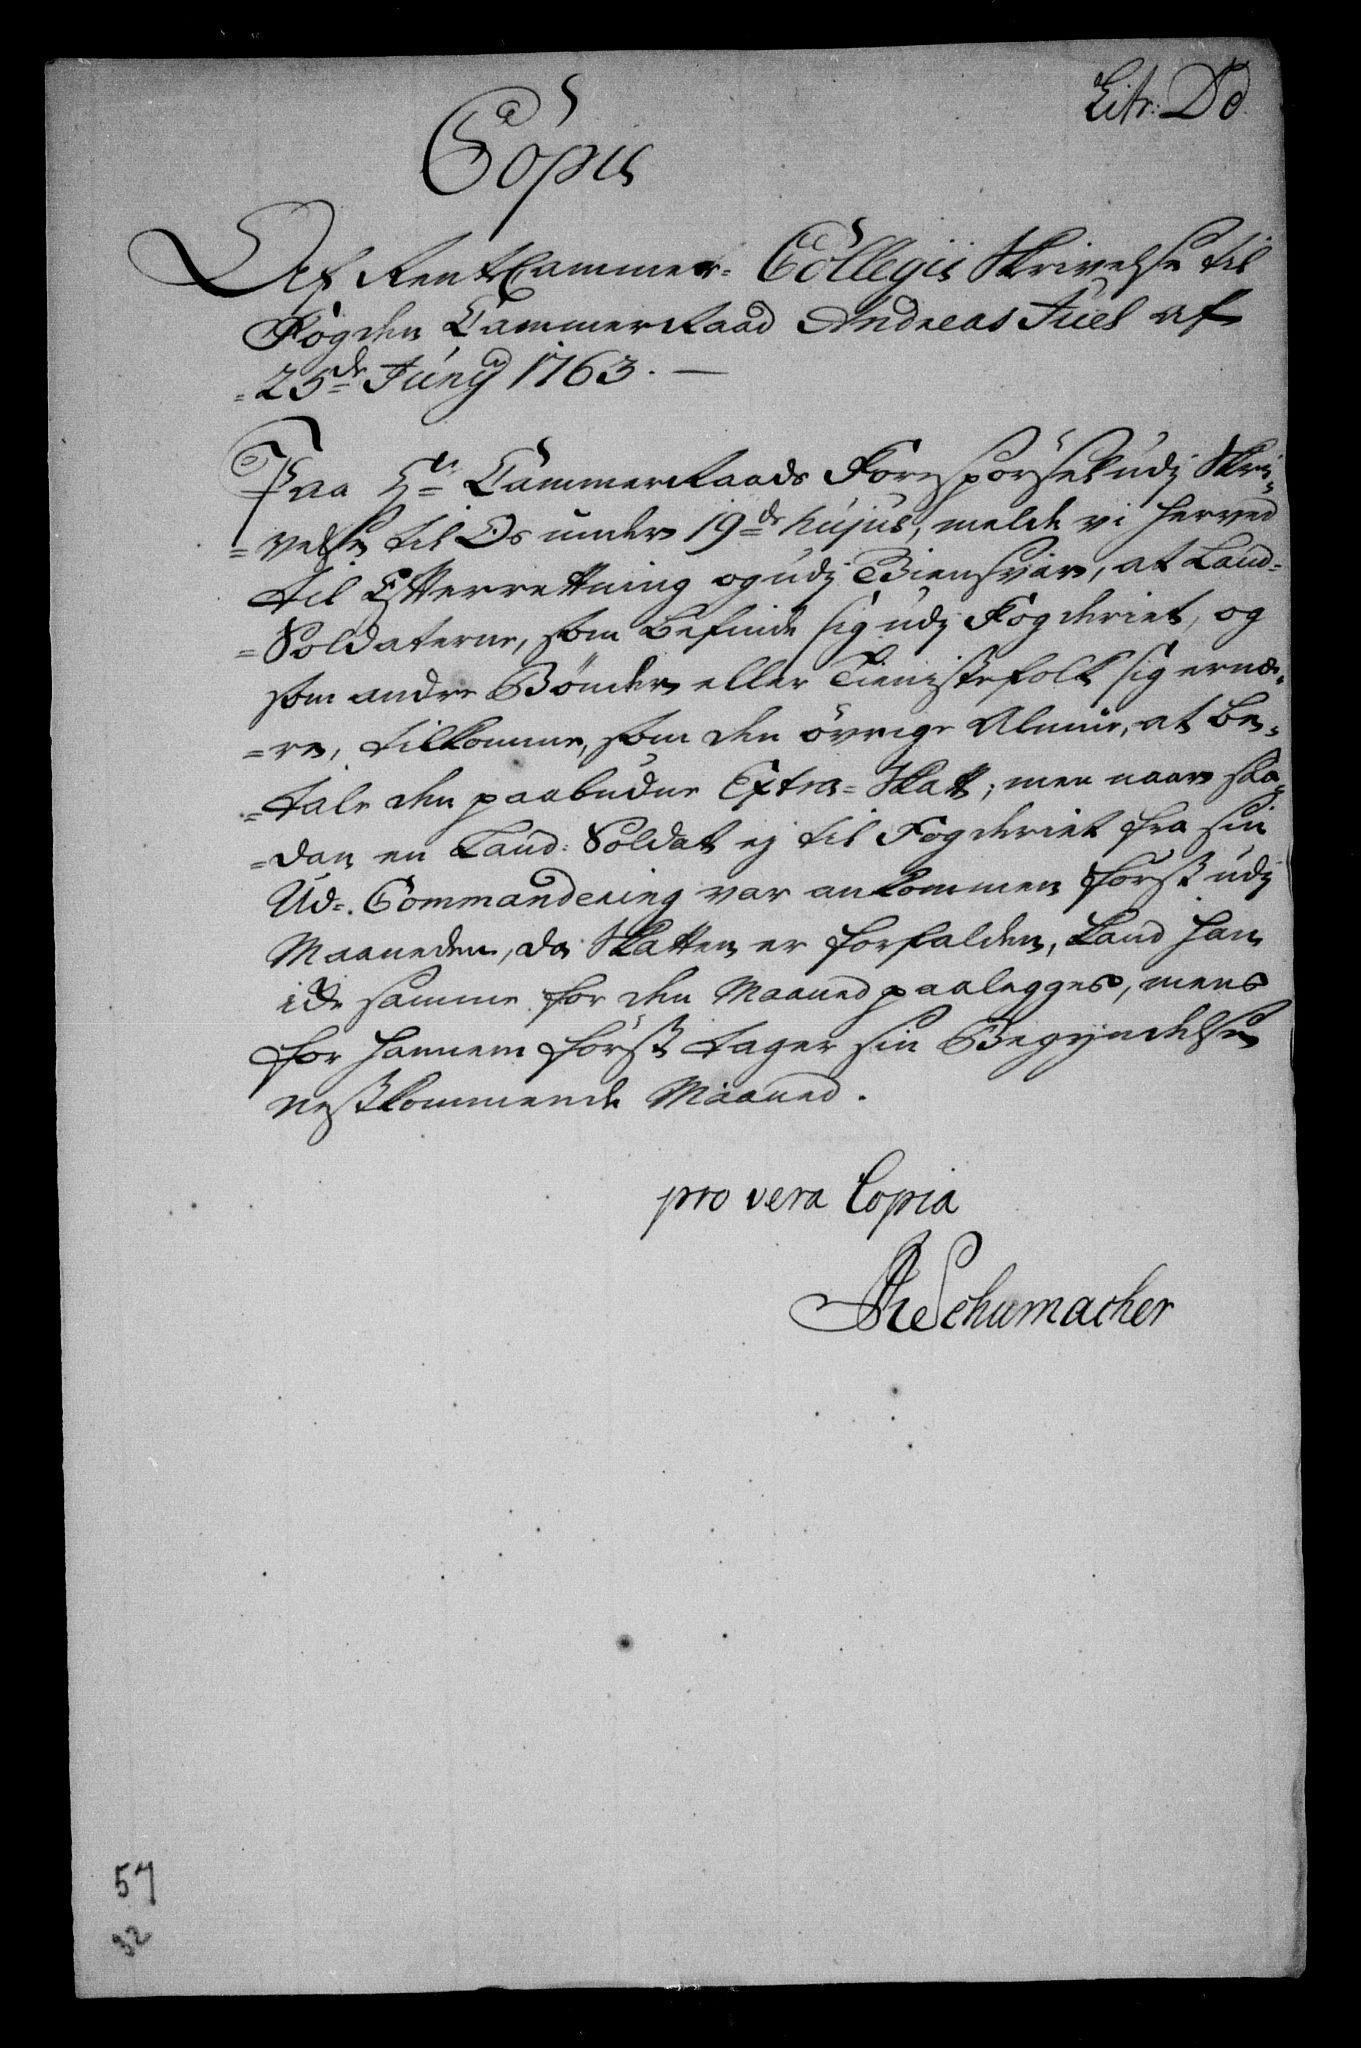 Litr: Dd.
Copie
Af RentCammer-Collegii Skrivelse til
Fogden CammerRaad Andreas Juel af
=25de Junij 1763. —
Paa Hr. CammerRaads Forespørsel udj Skri=
=velse til Os under 19de hujus, melde vi herved
til Efterretning og udj Giensvar, at Land=
=Soldaterne, som befinde sig udj Fogderiet, og
som andre Bønder eller Tienistefolk sig ernæ=
=re, tilkomme, som den øvrige Almue, at be=
=tale den paabudne Extra=Skatt; men naar saa=
=dan en Land=Soldat ej til Fogderiet fra sin
Ud=Commandering var ankommen først udj
Maaneden, da Skatten er forfalden, kand han
icke samme for den Maaned paalegges, mens
for hannem først tager sin Begyndelse
nestkommende Maaned.
pro vera Copia
Schumacher
57
32